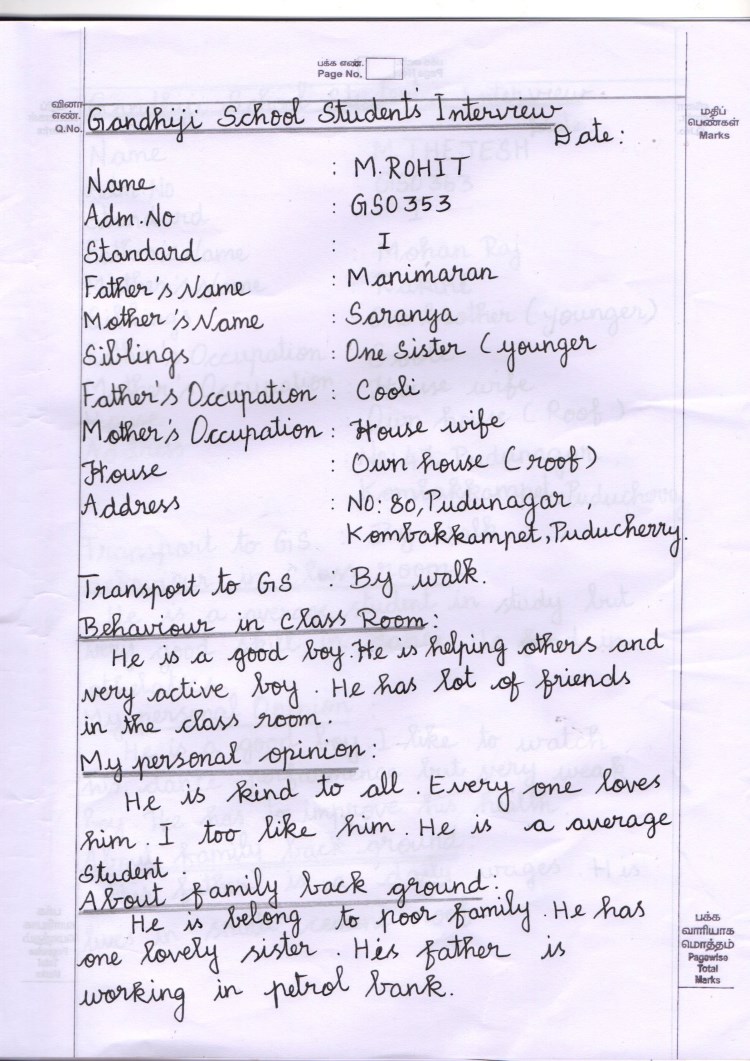 பக்க எண்.
Page No.
வினா
எண்.
Q.No.
மதிப்
பெண்கள்
Marks
Gandhiji School Student's Interview
Date :
Name : M. ROHIT
Adm. No : GS0353
Standard : I
Father's Name : Manimaran
Mother's Name : Saranya
Siblings : One Sister (younger
Father's Occupation : Cooli
Mother's Occupation : House wife
House : Own house (roof)
Address : No: 80, Pudunagar,
Kombakkampet, Puducherry.
Transport to GS : By walk.
Behaviour in Class Room:
He is a good boy. He is helping others and
very active boy. He has lot of friends
in the class room.
My personal opinion:
He is kind to all. Every one loves
him. I too like him. He is a average
student
About family back ground:
He is belong to poor family. He has
one lovely sister. His father is
working in petrol bank.
பக்க
வாரியாக
மொத்தம்
Pagewise
Total
Marks